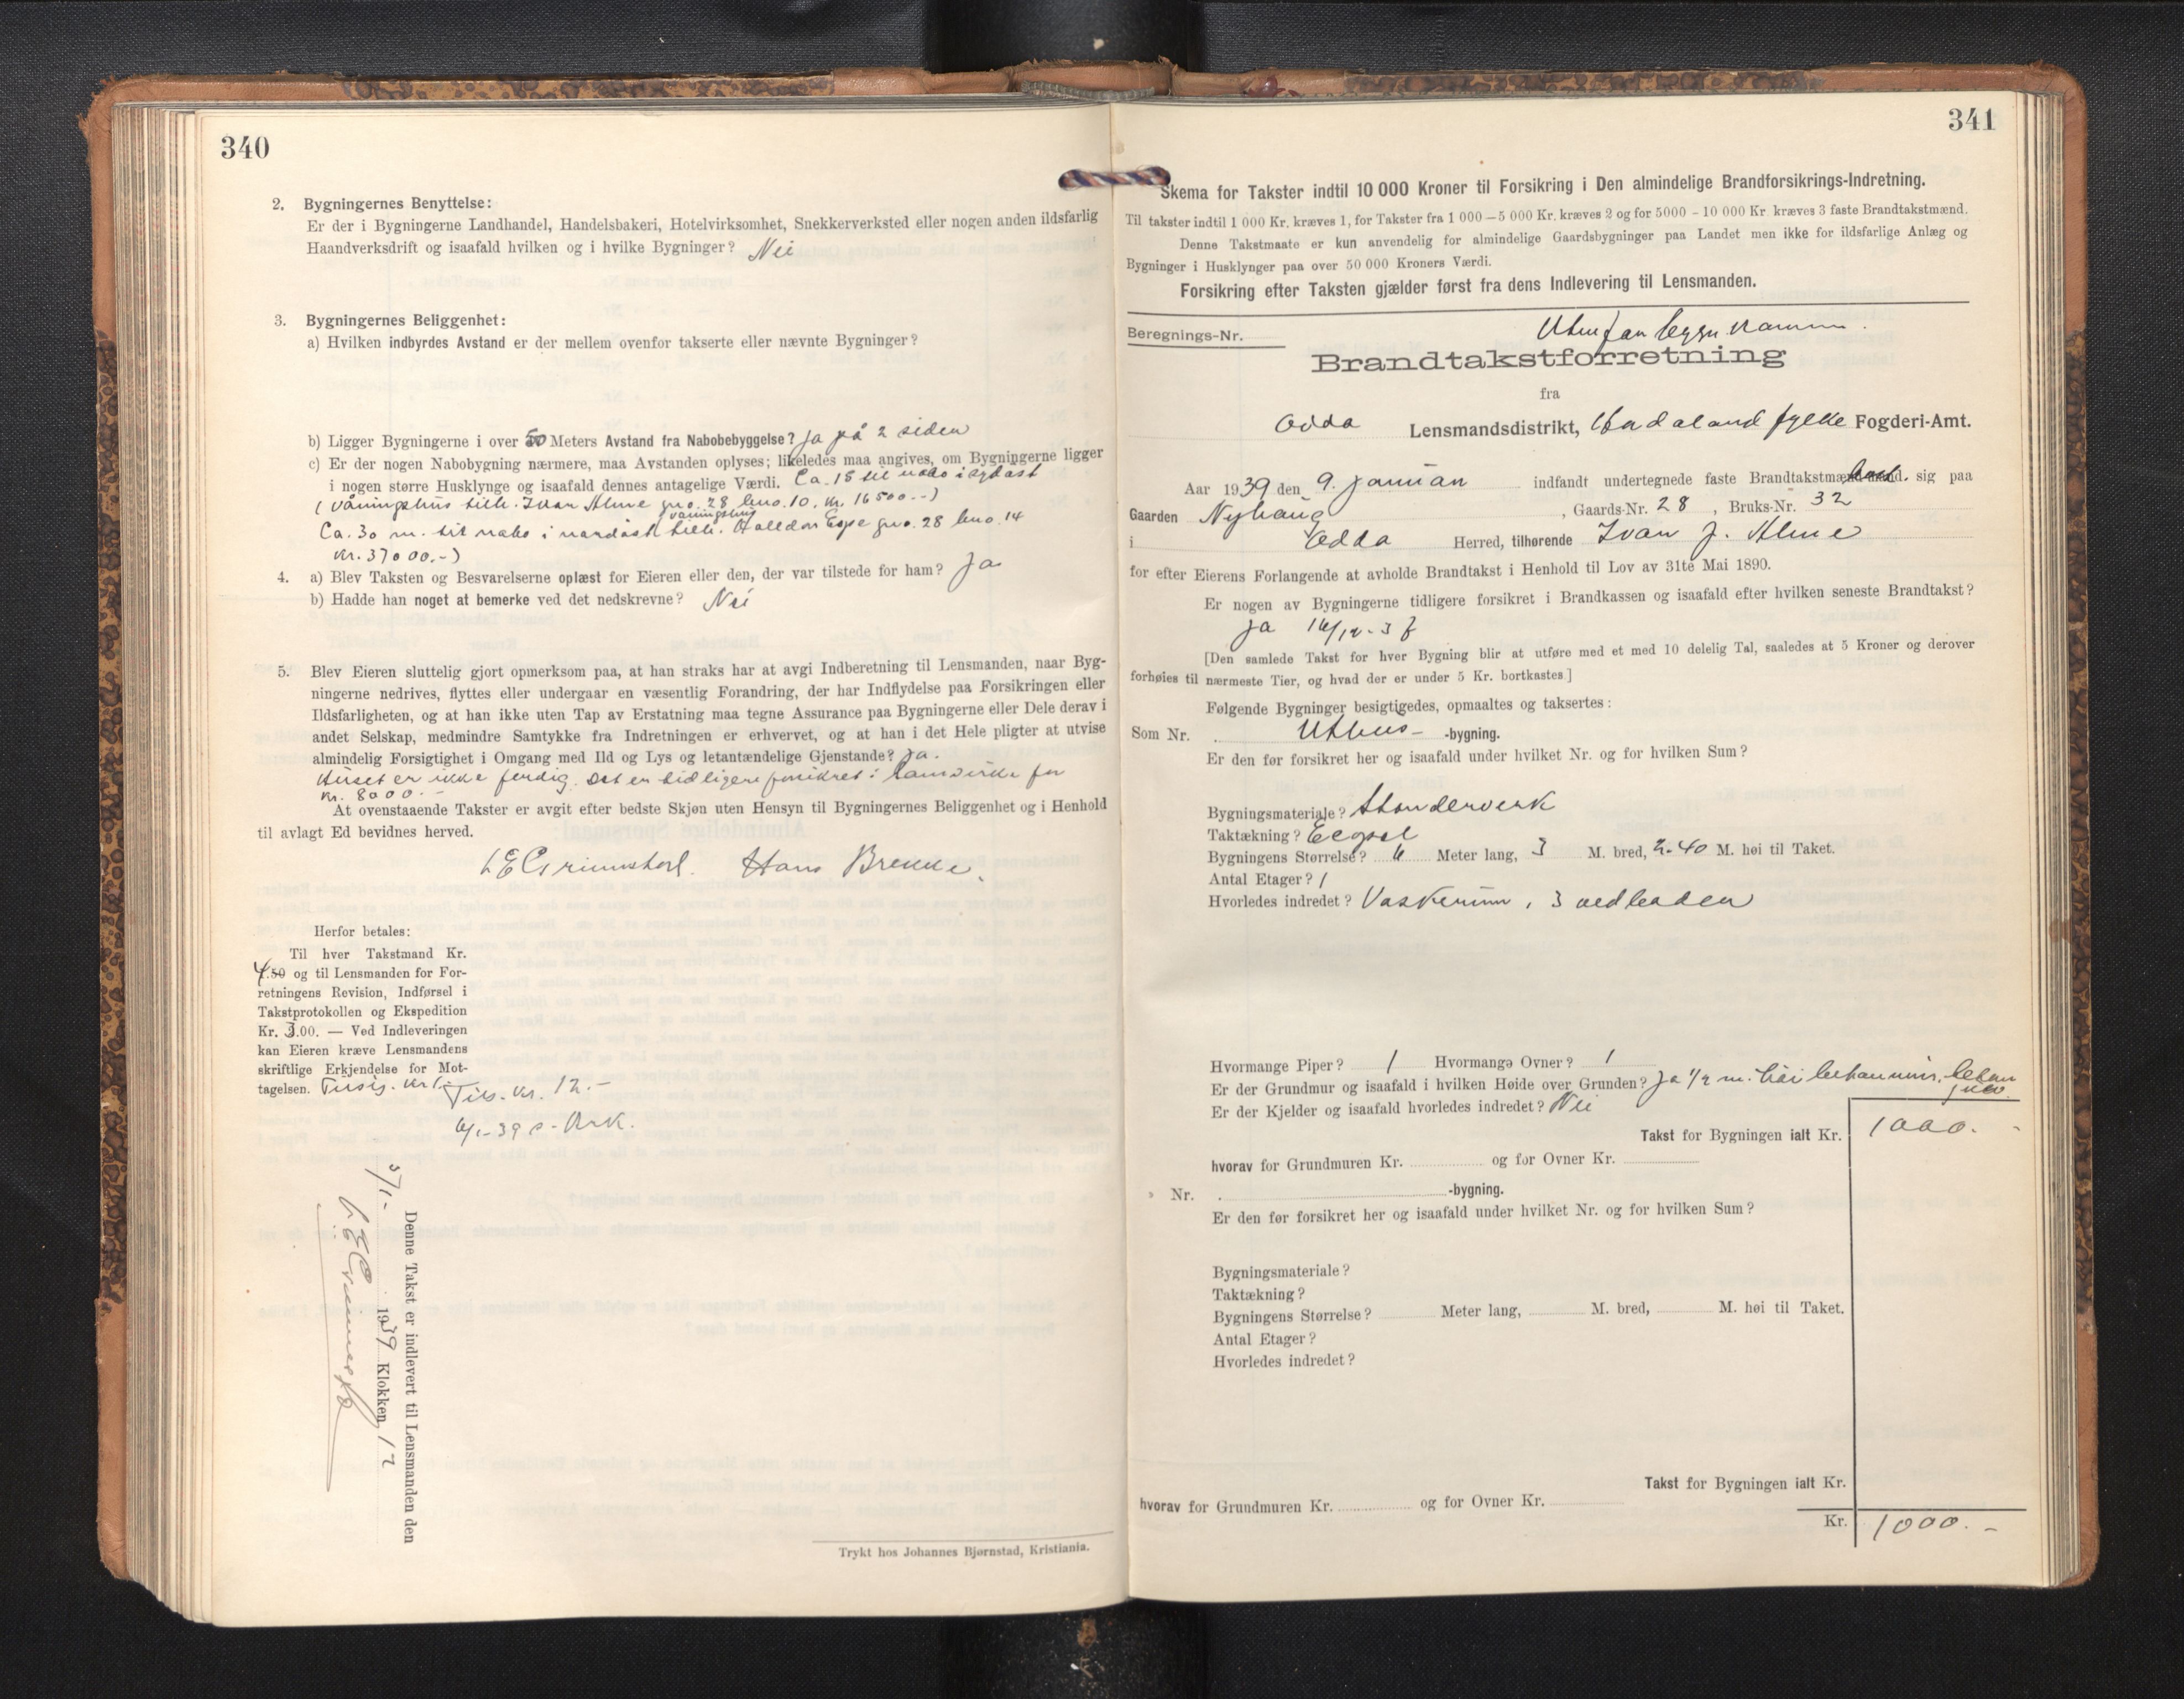 340
2. Bygningernes Benyttelse:
Er der i Bygningerne Landhandel, Handelsbakeri, Hotelvirksomhet, Snekkerverksted eller nogen anden ildsfarlig
Haandverksdrift og isaafald hvilken og i hvilke Bygninger? Nei
3. Bygningernes Beliggenhet:
a) Hvilken indbyrdes Avstand er der mellem ovenfor takserte eller nævnte Bygninger?
b) Ligger Bygningerne i over 50 Meters Avstand fra Nabobebyggelse? Ja på 2 siden
c) Er der nogen Nabobygning nærmere, maa Avstanden oplyses; likeledes maa angives, om Bygningerne ligger
i nogen større Husklynge og isaafald dennes antagelige Værdi. Ca. 15 til nabo i sydøst
(Våningshus tilh. Ivar Alme gno. 28 bno. 10. Kr. 16500.-)
våningshus
Ca. 30 m. til nabo i nordøst tilh. Halldor Espe gno. 28 bno. 14
Kr. 37000.-)
4. a) Blev Taksten og Besvarelserne oplæst for Eieren eller den, der var tilstede for ham? Ja
b) Hadde han noget at bemerke ved det nedskrevne? Nei
5. Blev Eieren sluttelig gjort opmerksom paa, at han straks har at avgi Indberetning til Lensmanden, naar Byg-
ningerne nedrives, flyttes eller undergaar en væsentlig Forandring, der har Indflydelse paa Forsikringen eller
Ildsfarligheten, og at han ikke uten Tap av Erstatning maa tegne Assurance paa Bygningerne eller Dele derav i
andet Selskap, medmindre Samtykke fra Indretningen er erhvervet, og at han i det Hele pligter at utvise
almindelig Forsigtighet i Omgang med Ild og Lys og letantændelige Gjenstande? Ja.
Huset er ikke ferdig. Det er tidligere forsikret i for
Kr. 8000.-
At ovenstaaende Takster er avgit efter bedste Skjøn uten Hensyn til Bygningernes Beliggenhet og i Henhold
til avlagt Ed bevidnes herved.
Hans Brekke.
Herfor betales:
Til hver Takstmand Kr.
4.50 og til Lensmanden for For-
retningens Revision, Indførsel i
Takstprotokollen og Ekspedition
Kr. 3.00. — Ved Indleveringen
kan Eieren kræve Lensmandens
skriftlige Erkjendelse for Mot-
tagelsen.
Kr. 12.-
Denne Takst er indlevert til Lensmanden den
1939 Klokken 12
Trykt hos Johannes Bjørnstad, Kristiania.
341
Skema for Takster indtil 10 000 Kroner til Forsikring i Den almindelige Brandforsikrings-Indretning.
Til takster indtil 1 000 Kr. kræves 1, for Takster fra 1 000 — 5 000 Kr. kræves 2 og for 5000 - 10 000 Kr. kræves 3 faste Brandtakstmænd.
Denne Takstmaate er kun anvendelig for almindelige Gaardsbygninger paa Landet men ikke for ildsfarlige Anlæg og
Bygninger i Husklynger paa over 50 000 Kroners Værdi.
Forsikring efter Taksten gjælder først fra dens Indlevering til Lensmanden.
Beregnings-Nr.
Brandtakstforretning
fra
Odda Lensmandsdistrikt, Hordaland fylke Fogderi-Amt.
Aar 1939 den 9. januar indfandt undertegnede faste Brandtakstmænd sig paa
Gaarden Nyhaug, Gaards-Nr. 28, Bruks-Nr. 32
i Odda Herred, tilhørende Ivar J. Alme
for efter Eierens Forlangende at avholde Brandtakst i Henhold til Lov av 31te Mai 1890.
Er nogen av Bygningerne tidligere forsikret i Brandkassen og isaafald efter hvilken seneste Brandtakst?
Ja
[Den samlede Takst for hver Bygning blir at utføre med et med 10 delelig Tal, saaledes at 5 Kroner og derover
forhøies til nærmeste Tier, og hvad der er under 5 Kr. bortkastes]
Følgende Bygninger besigtigedes, opmaaltes og taksertes:
Som Nr. Uthus- -bygning.
Er den før forsikret her og isaafald under hvilket Nr. og for hvilken Sum?
Bygningsmateriale? Standerverk
Taktækning?
Bygningens Størrelse? 6 Meter lang, 3 M. bred, 2.40 M. høi til Taket.
Antal Etager? 1
Hvorledes indredet? Vaskerum, 3 vedboder
Hvormange Piper? 1 Hvormange Ovner? 1
Er der Grundmur og isaafald i hvilken Høide over Grunden? Ja 1/2 m. høi betongmur, betong
gulv.
Er der Kjelder og isaafald hvorledes indredet? Nei
Takst for Bygningen ialt Kr. 1000.-
hvorav for Grundmuren Kr. og for Ovner Kr.
» Nr. -bygning.
Er den før forsikret her og isaafald under hvilket Nr. og for hvilken Sum?
Bygningsmateriale?
Taktækning?
Bygningens Størrelse? Meter lang, M. bred, M. høi til Taket.
Antal Etager?
Hvorledes indredet?
Takst for Bygningen ialt Kr.
hvorav for Grundmuren Kr. og for Ovner Kr.
Kr. 1000.-